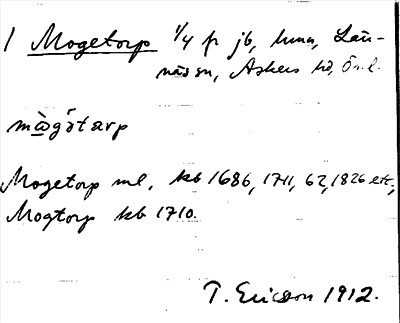 1 Mogetorp 1/4 fr jb, hmn, Län-
näs sn, Askers hd, Ör. l.
mὼgətarp
Mogetorp ml, kb 1686, 1711, 62, 1826 etc;
Mogtorp kb 1710.
T. Ericson 1912.